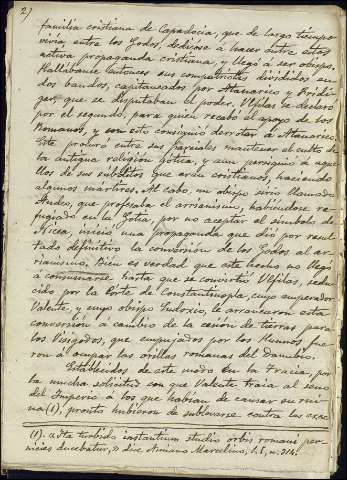 27
familia cristiana de Capadocia, que de largo tiempo
vivía entre los Godos, dedicose á hacer entre estos
activa propaganda cristiana, y llegó á ser obispo.
Hallábanse entonces sus compatriotas divididos en
dos bandos, capitaneados por Atanarico y Fridi-
gern que se disputaban el poder. Ulfilas se declaró
por el segundo, para quien recabó el apoyo de los
Romanos, y con esto consiguió derrotar á Atanarico.
Este procuró entre sus parciales mantener el culto de
la antigua religion gótica, y aun persiguió á aque-
llos de sus súbditos que eran cristianos, haciendo
algunos mártires. Al cabo, un obispo sirio llamado
Audeo, que profesaba el arrianismo, habiéndose re-
fugiado en la Gotia, por no aceptar el símbolo de
Nicea, inició una propaganda que dió por resul-
tado definitivo la conversión de los Godos al ar-
rianismo. Bien es verdad que este hecho no llegó
á consumarse hasta que se convirtió Ulfilas, sedu-
cido por la Corte de Constantinopla, cuyo emperador
Valente, y cuyo obispo Eudoxio, le arrancaron esta
conversión á cambio de la cesión de tierras para
los Visigodos, que empujados por los Hunnos fue-
ron á ocupar las orillas romanas del Danubio.
Establecidos de este modo en la Tracia, por
la mucha solicitud con que Valente traia al seno
del Imperio á los que habían de causar su rui-
na (1), pronto hubieron de sublevarse contra las exac-
(1). «Ita turbido instantium studio orbis romani per-
nicies ducebatur,» dice Amiano Marcelino,